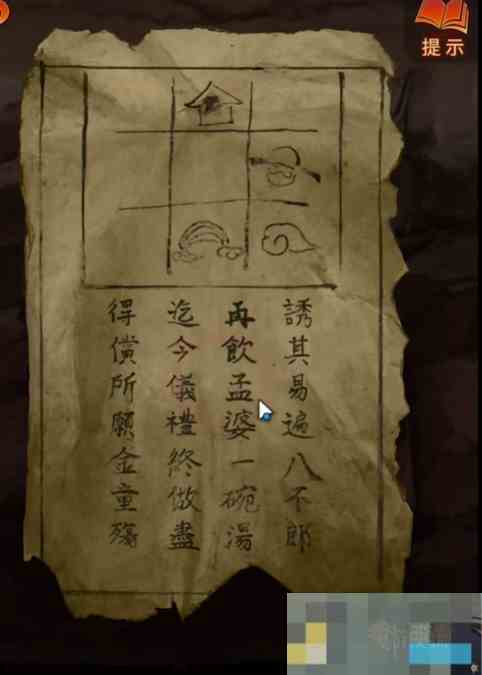 提示
誘其易遍八不郎
再飲孟婆一碗湯
迄今儀禮終做盡
得償所願金童殤